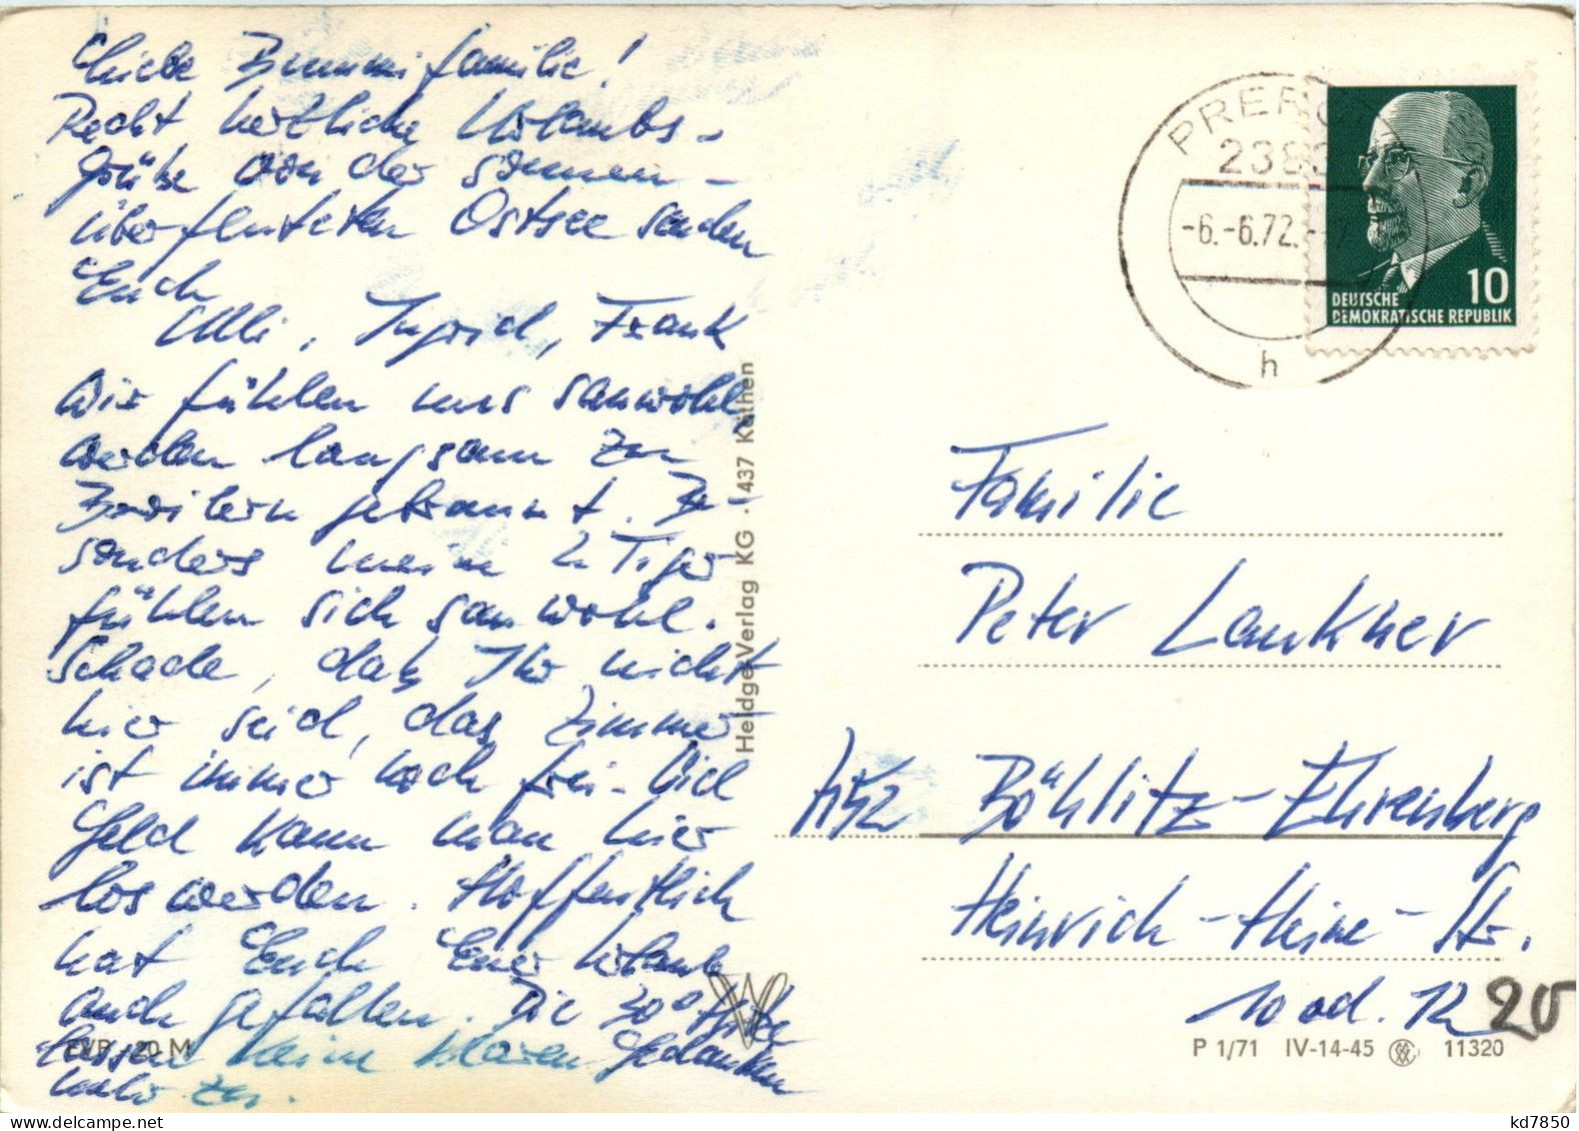 Liebe Bummifamilie!
Recht herzliche Urlaubs-
grüße von der sonnen-
überfluteten Ostsee senden
Euch
Ulli, Ingrid, Frank
Wir fühlen uns sauwohl,
werden langsam zu
Brasilern gebrannt. Be-
sonders meine 2 Tiger
fühlen sich sauwohl.
Schade, daß Ihr nicht
hier seid, das Zimmer
ist immer noch frei. Viel
Geld kann man hier
los werden. Hoffentlich
hat Euch Euer Urlaub
auch gefallen. Die 30° Hitze
lassen keine klaren Gedanken
mehr zu.
EVP -,20 M
Heldge-Verlag KG · 437 Köthen
PREROW
238
-6.-6.72.-
h
10
DEUTSCHE
DEMOKRATISCHE REPUBLIK
Familie
Peter Laukner
7152 Böhlitz-Ehrenberg
Heinrich-Heine-Str.
10 od. 12
20
P 1/71 IV-14-45 11320
kd7850